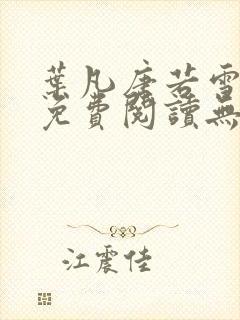 葉凡唐若雪
免費閱讀無
江震佳